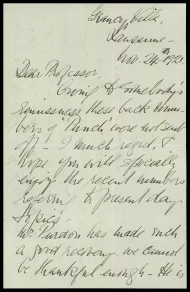 Grancy Villa.
Lausanne –
Nov. 24th 1921.
Dear Professor,
Owing to somebody's
these back num-
bers of 'Punch' were not sent
off – I much regret, I
hope you will specially
enjoy the recent numbers
referring to present day
topics –
Mr Purdon has made such
a good recovery we cannot
be thankful enough – He is